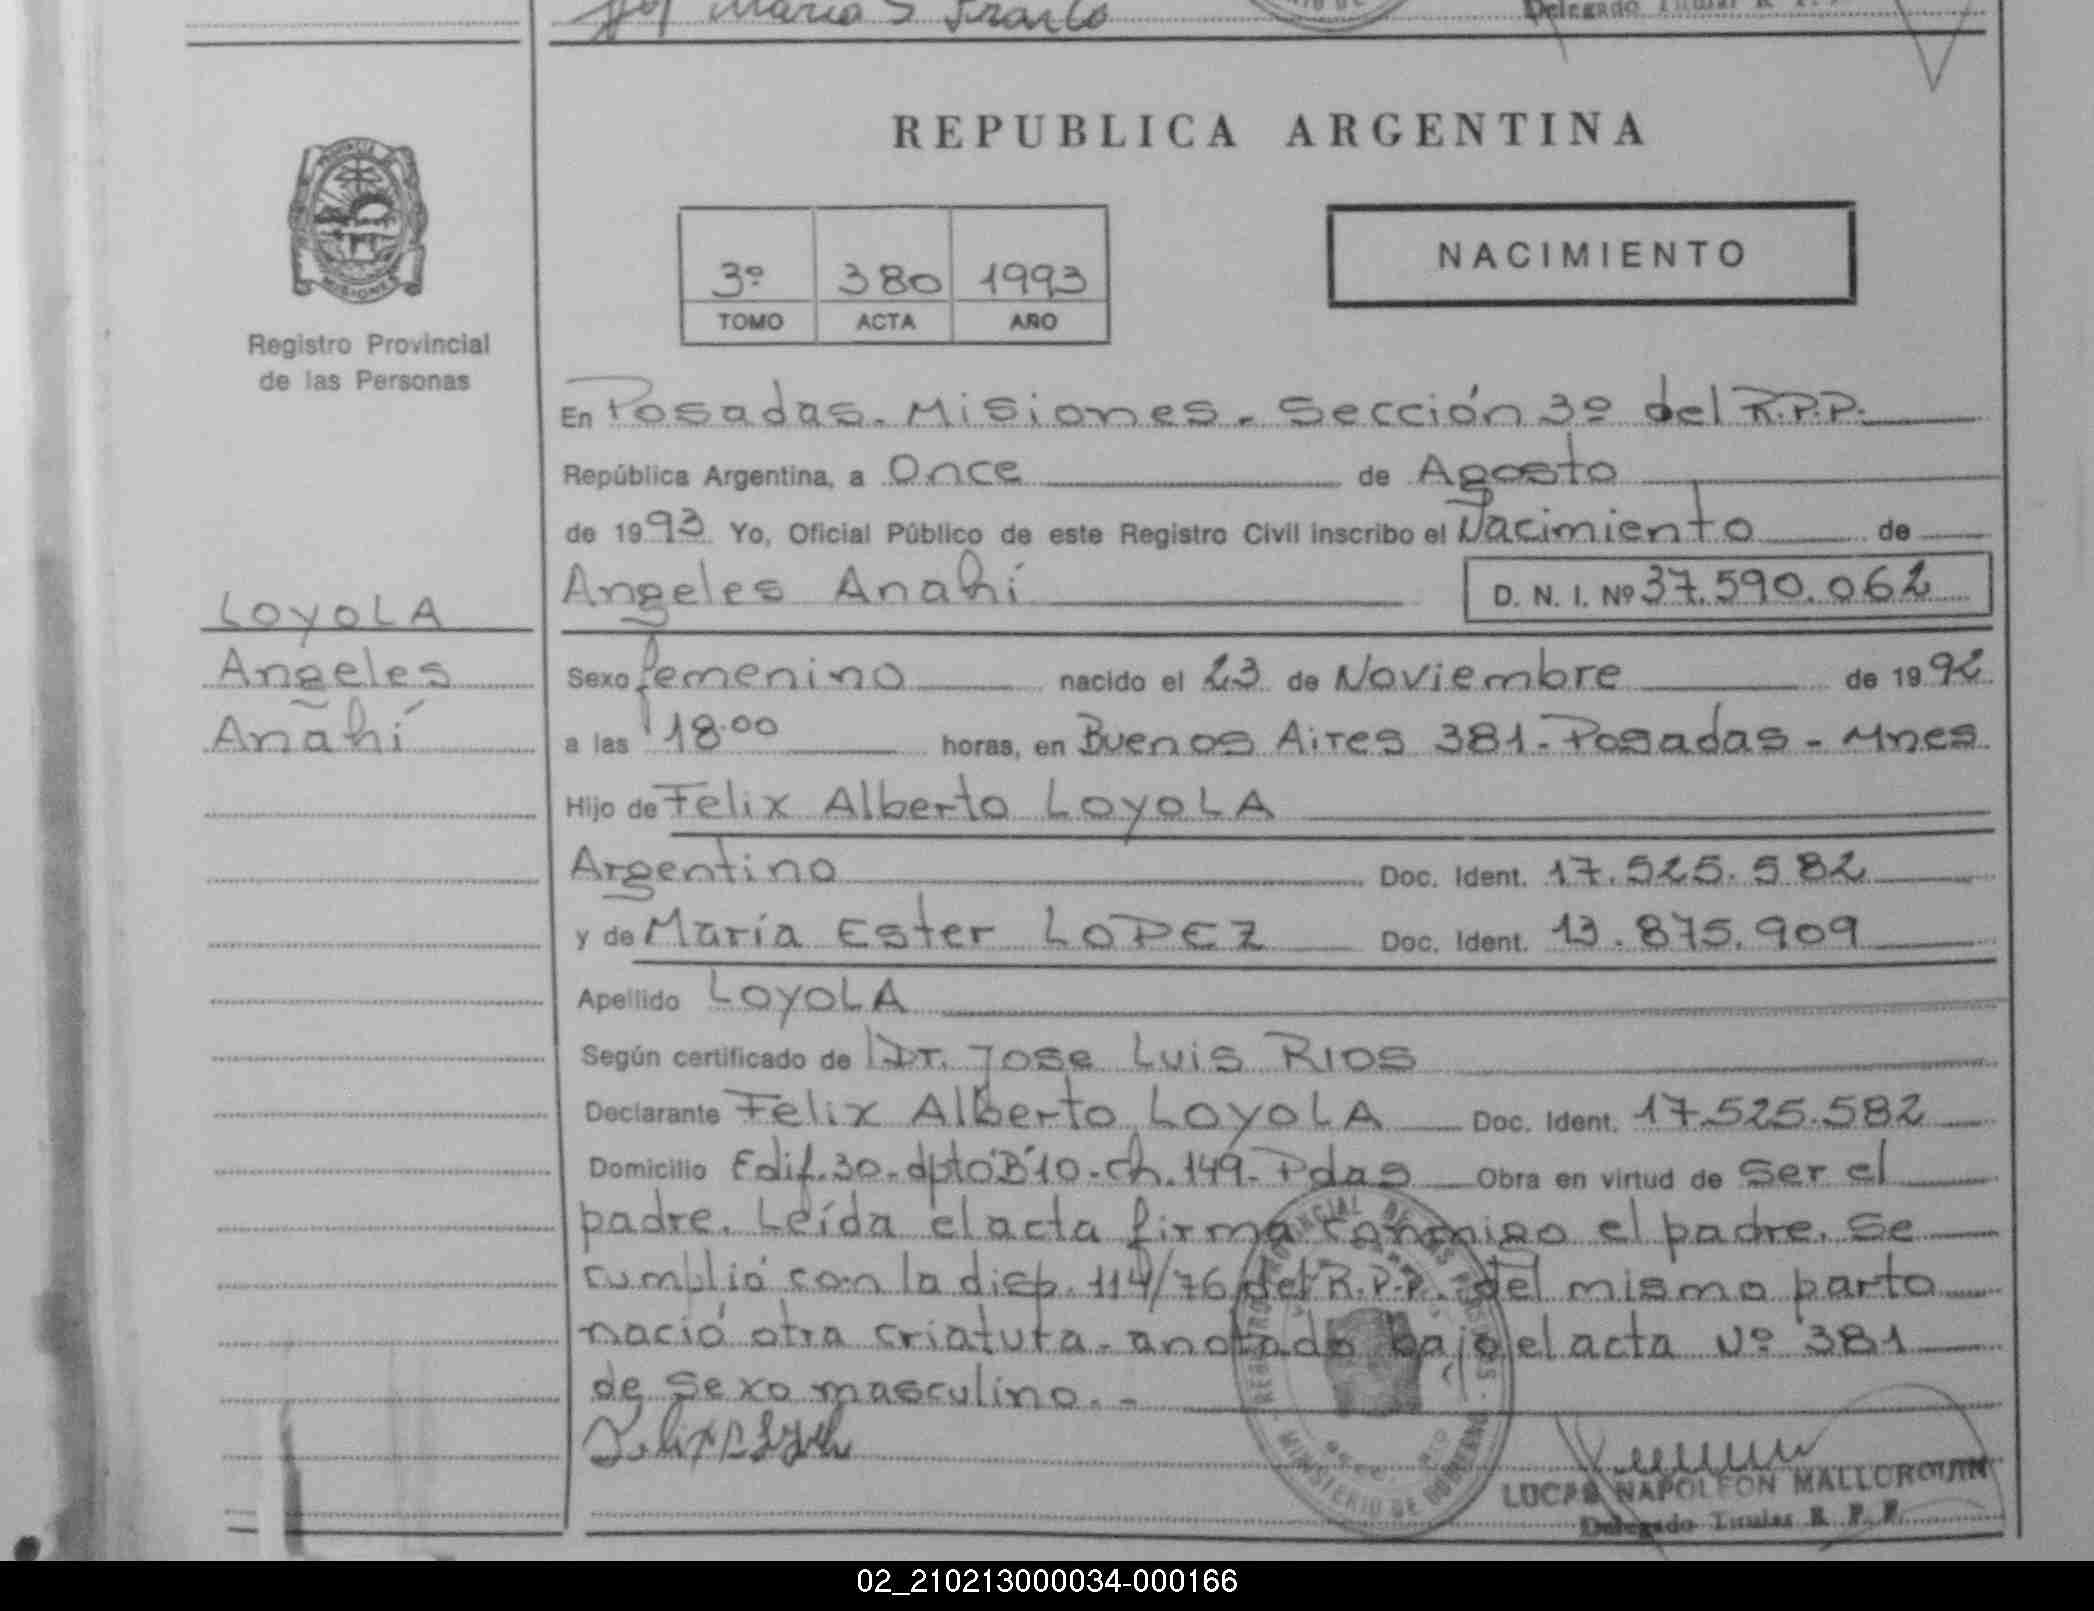 Maria S
Delegado Titular R. P.
REPUBLICA ARGENTINA
PROVINCIA DE
MISIONES
Registro Provincial
de las Personas
3º 380 1993
TOMO ACTA AÑO
NACIMIENTO
En Posadas. Misiones. Sección 3º del R.P.P.
República Argentina, a Once de Agosto
de 1993 Yo, Oficial Público de este Registro Civil inscribo el Nacimiento de
Angeles Anahí D. N. I. Nº 37.590.062
LOYOLA
Angeles
Anahí
Sexo femenino nacido el 23 de Noviembre de 1992
a las 18.00 horas, en Buenos Aires 381-Posadas-Mnes.
Hijo de Felix Alberto LOYOLA
Argentino Doc. Ident. 17.525.582
y de María Ester LOPEZ Doc. Ident. 13.875.909
Apellido LOYOLA
Según certificado de Dr. Jose Luis RIOS
Declarante Felix Alberto LOYOLA Doc. Ident. 17.525.582
Domicilio Edif.30-dpto"B"10-ch.149-Pdas Obra en virtud de Ser el
padre. Leída el acta firma conmigo el padre. Se
cumplió con la disp. 114/76 del R.P.P. del mismo parto
nació otra criatura-anotado bajo el acta Nº 381
de sexo masculino.-
REGISTRO PROVINCIAL DE LAS PERSONAS
MINISTERIO DE GOBIERNO
LUCAS NAPOLEON
Delegado Titular R. P. P.
02_210213000034-000166